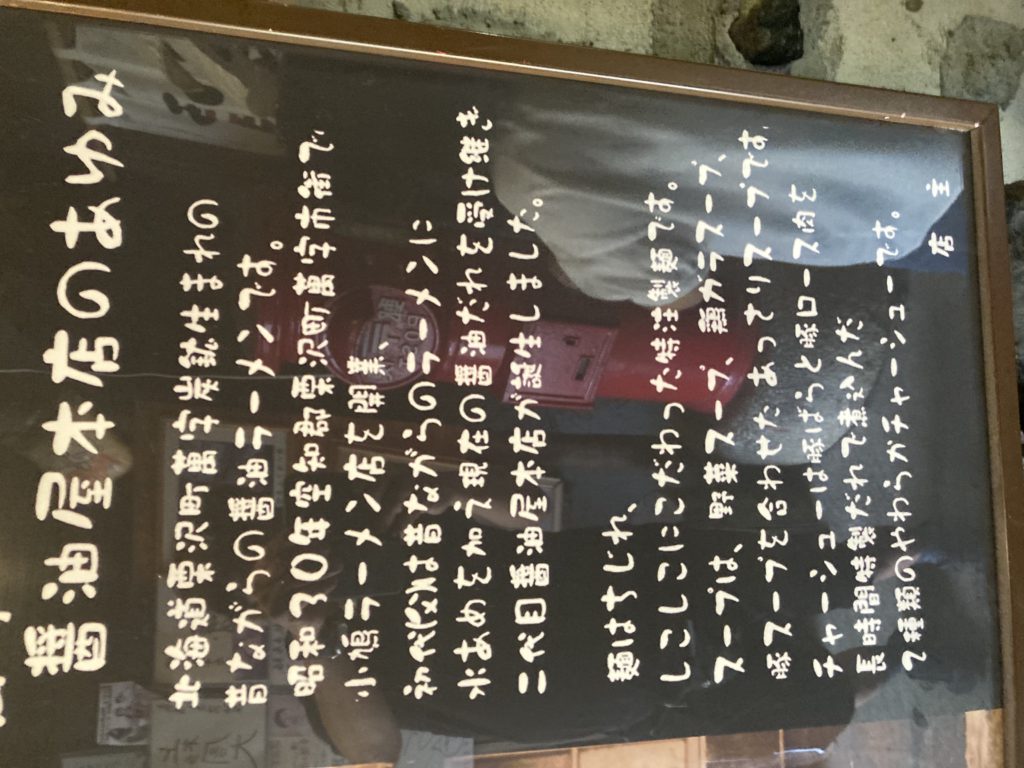 醤油屋本店のあゆみ
北海道栗沢町萬字炭鉱生まれの
昔ながらの醤油ラーメンです。
昭和30年空知郡栗沢町萬字市街で
小鳩ラーメン店を開業、
初代の父は昔ながらのラーメンに
水あめを加え現在の醤油だれを受け継ぎ
二代目醤油屋本店が誕生しました。
麺はちぢれ、
しこしこにこだわった特注製麺です。
スープは、野菜スープ、鶏ガラスープ、
豚スープを合わせたあっさりスープです。
チャーシューは豚ばらと豚ロース肉を
長時間特製だれで煮込んだ
2種類のやわらかチャーシューです。
店主